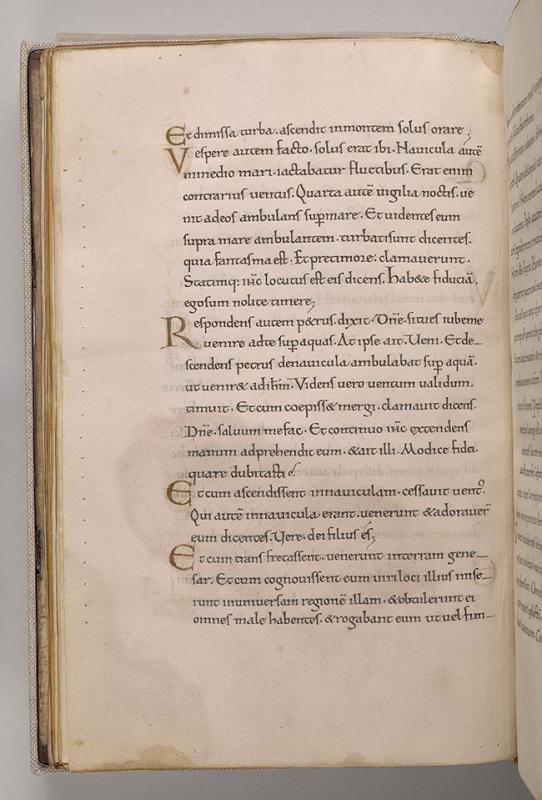 Et dimissa turba. ascendit inmontem solus orare;
Vespere autem facto. solus erat ibi. Navicula autē
inmedio mari. iactabatur fluctibus. Erat enim
contrarius ventus. Quarta autē vigilia noctis. ve
nit adeos ambulans sup̄mare. Et videntes eum
supra mare ambulantem. turbatisunt dicentes.
quia fantasma est; Et pretimore. clamaverunt.
Statimq; iħc locutus est eis dicens. hab&e fiduciā.
egosum nolite timere;
Respondens autem p&rus. dixit. Dn̄e. situes iubeme
venire adte sup̄aquas. At ipse ait. Veni. Et de-
scendens petrus denavicula ambulabat sup̄ aquā.
ut venir& adih̄m. Videns vero ventum validum.
timuit. Et cum coepiss& mergi. clamavit dicens.
Dn̄e. salvum mefac. Et continuo iħc extendens
manum adprehendit eum. &ait illi. Modice fidei.
quare dubitasti
Et cum ascendissent innaviculam. cessavit vent᾿
Qui autē innavicula erant. venerunt &adoraver̄
eum dicentes. Vere. dei filius es;
Et cum trans fretassent. venerunt interram gene-
sar. Et cum cognovissent eum viri loci illius mise-
runt inuniversam regionē illam. &obtulerunt ei
omnes male habentes. &rogabant eum ut vel fim-